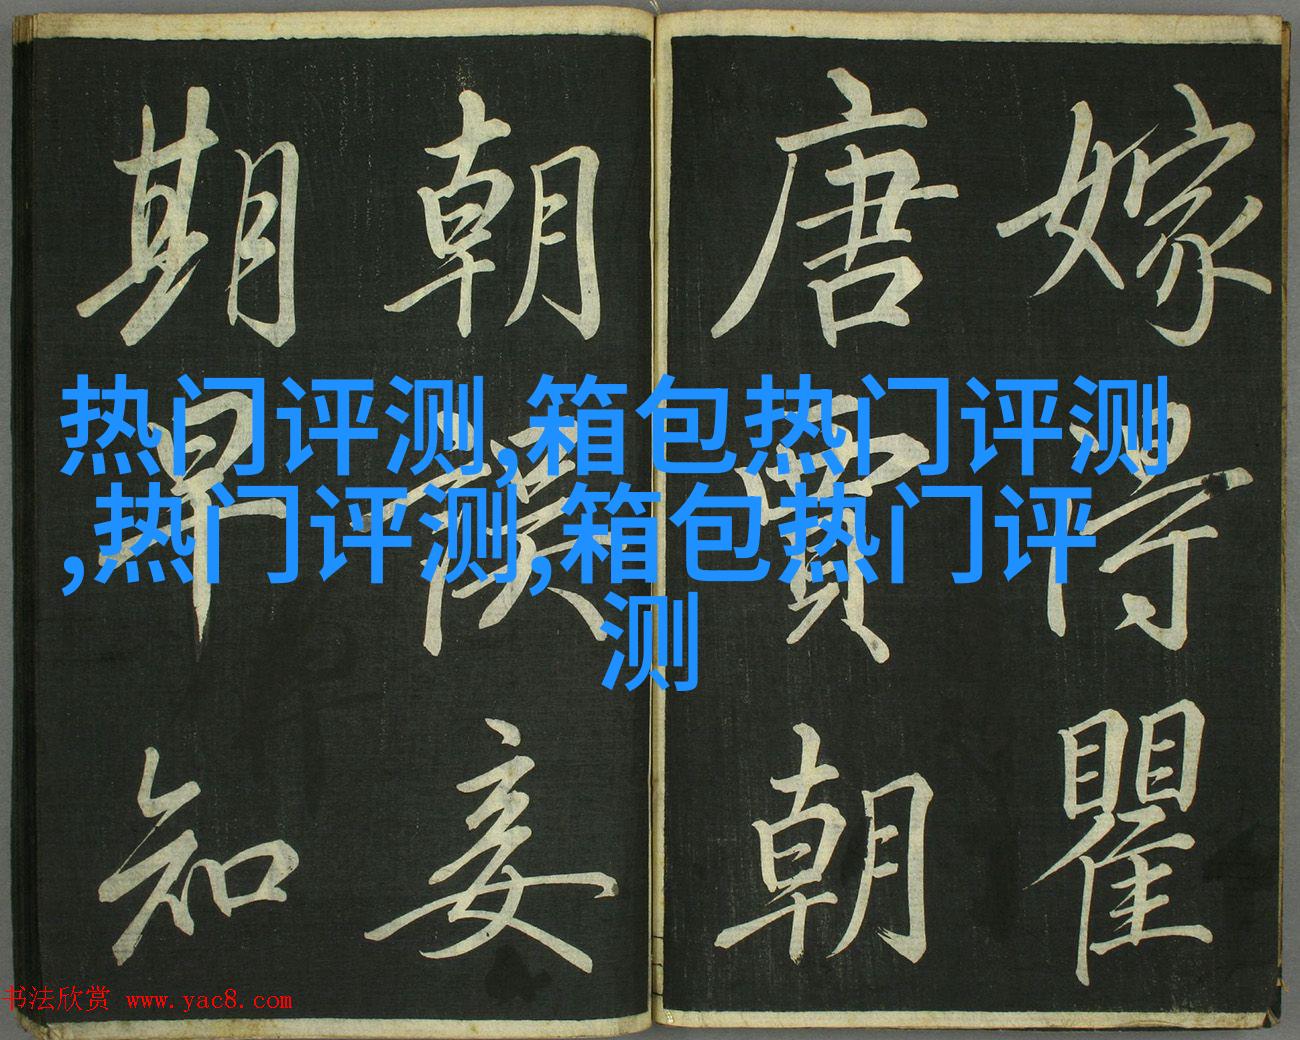 嫁得瞿
唐賈朝
朝誤妾
期早知
热门评测,箱包热门评测
,热门评测,箱包热门评
测
书法欣赏 www.yac8.com